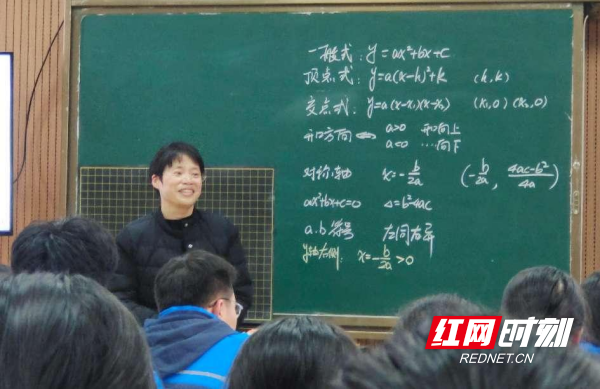 一般式: y=ax²+bx+c
顶点式: y=a(x-h)²+k (h,k)
交点式: y=a(x-x₁)(x-x₂) (x₁,0) (x₂,0)
开口方向 ⇔ a>0 开口向上
a<0 ⋯向下
对称轴 x=-b/2a (-b/2a, 4ac-b²/4a)
ax²+bx+c=0 Δ=b²-4ac
a.b符号 左同右异
y轴右侧: x=-b/2a>0
红网时刻
REDNET.CN